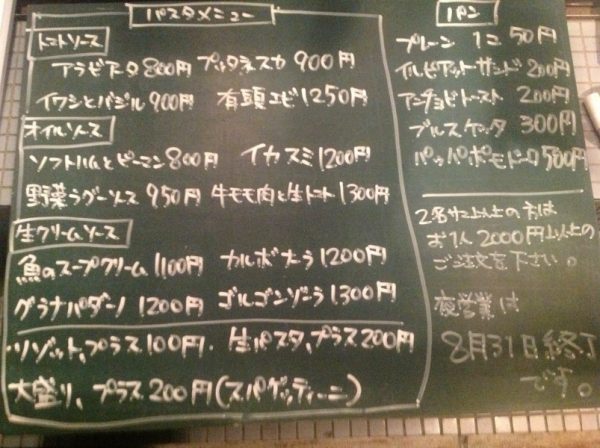 パスタメニュー
トマトソース
アラビアータ 800円 プッタネスカ 900円
イワシとバジル 900円 有頭エビ 1250円
オイルソース
ソフトハムとピーマン 800円 イカスミ 1200円
野菜ラグーソース 950円 牛モモ肉と生トマト 1300円
生クリームソース
魚のスープクリーム 1100円 カルボナーラ 1200円
グラナパダーノ 1200円 ゴルゴンゾーラ 1300円
・リゾット、プラス100円・生パスタ、プラス200円
大盛り、プラス200円(スパゲッティーニ)
パン
プレーン 1コ 50円
イルピアットサンド 200円
アンチョビトースト 200円
ブルスケッタ 300円
パッパポモドーロ 500円
2名サマ以上の方は
お1人 2000円以上の
ご注文を下さい。
夜営業は
8月31日終了
です。